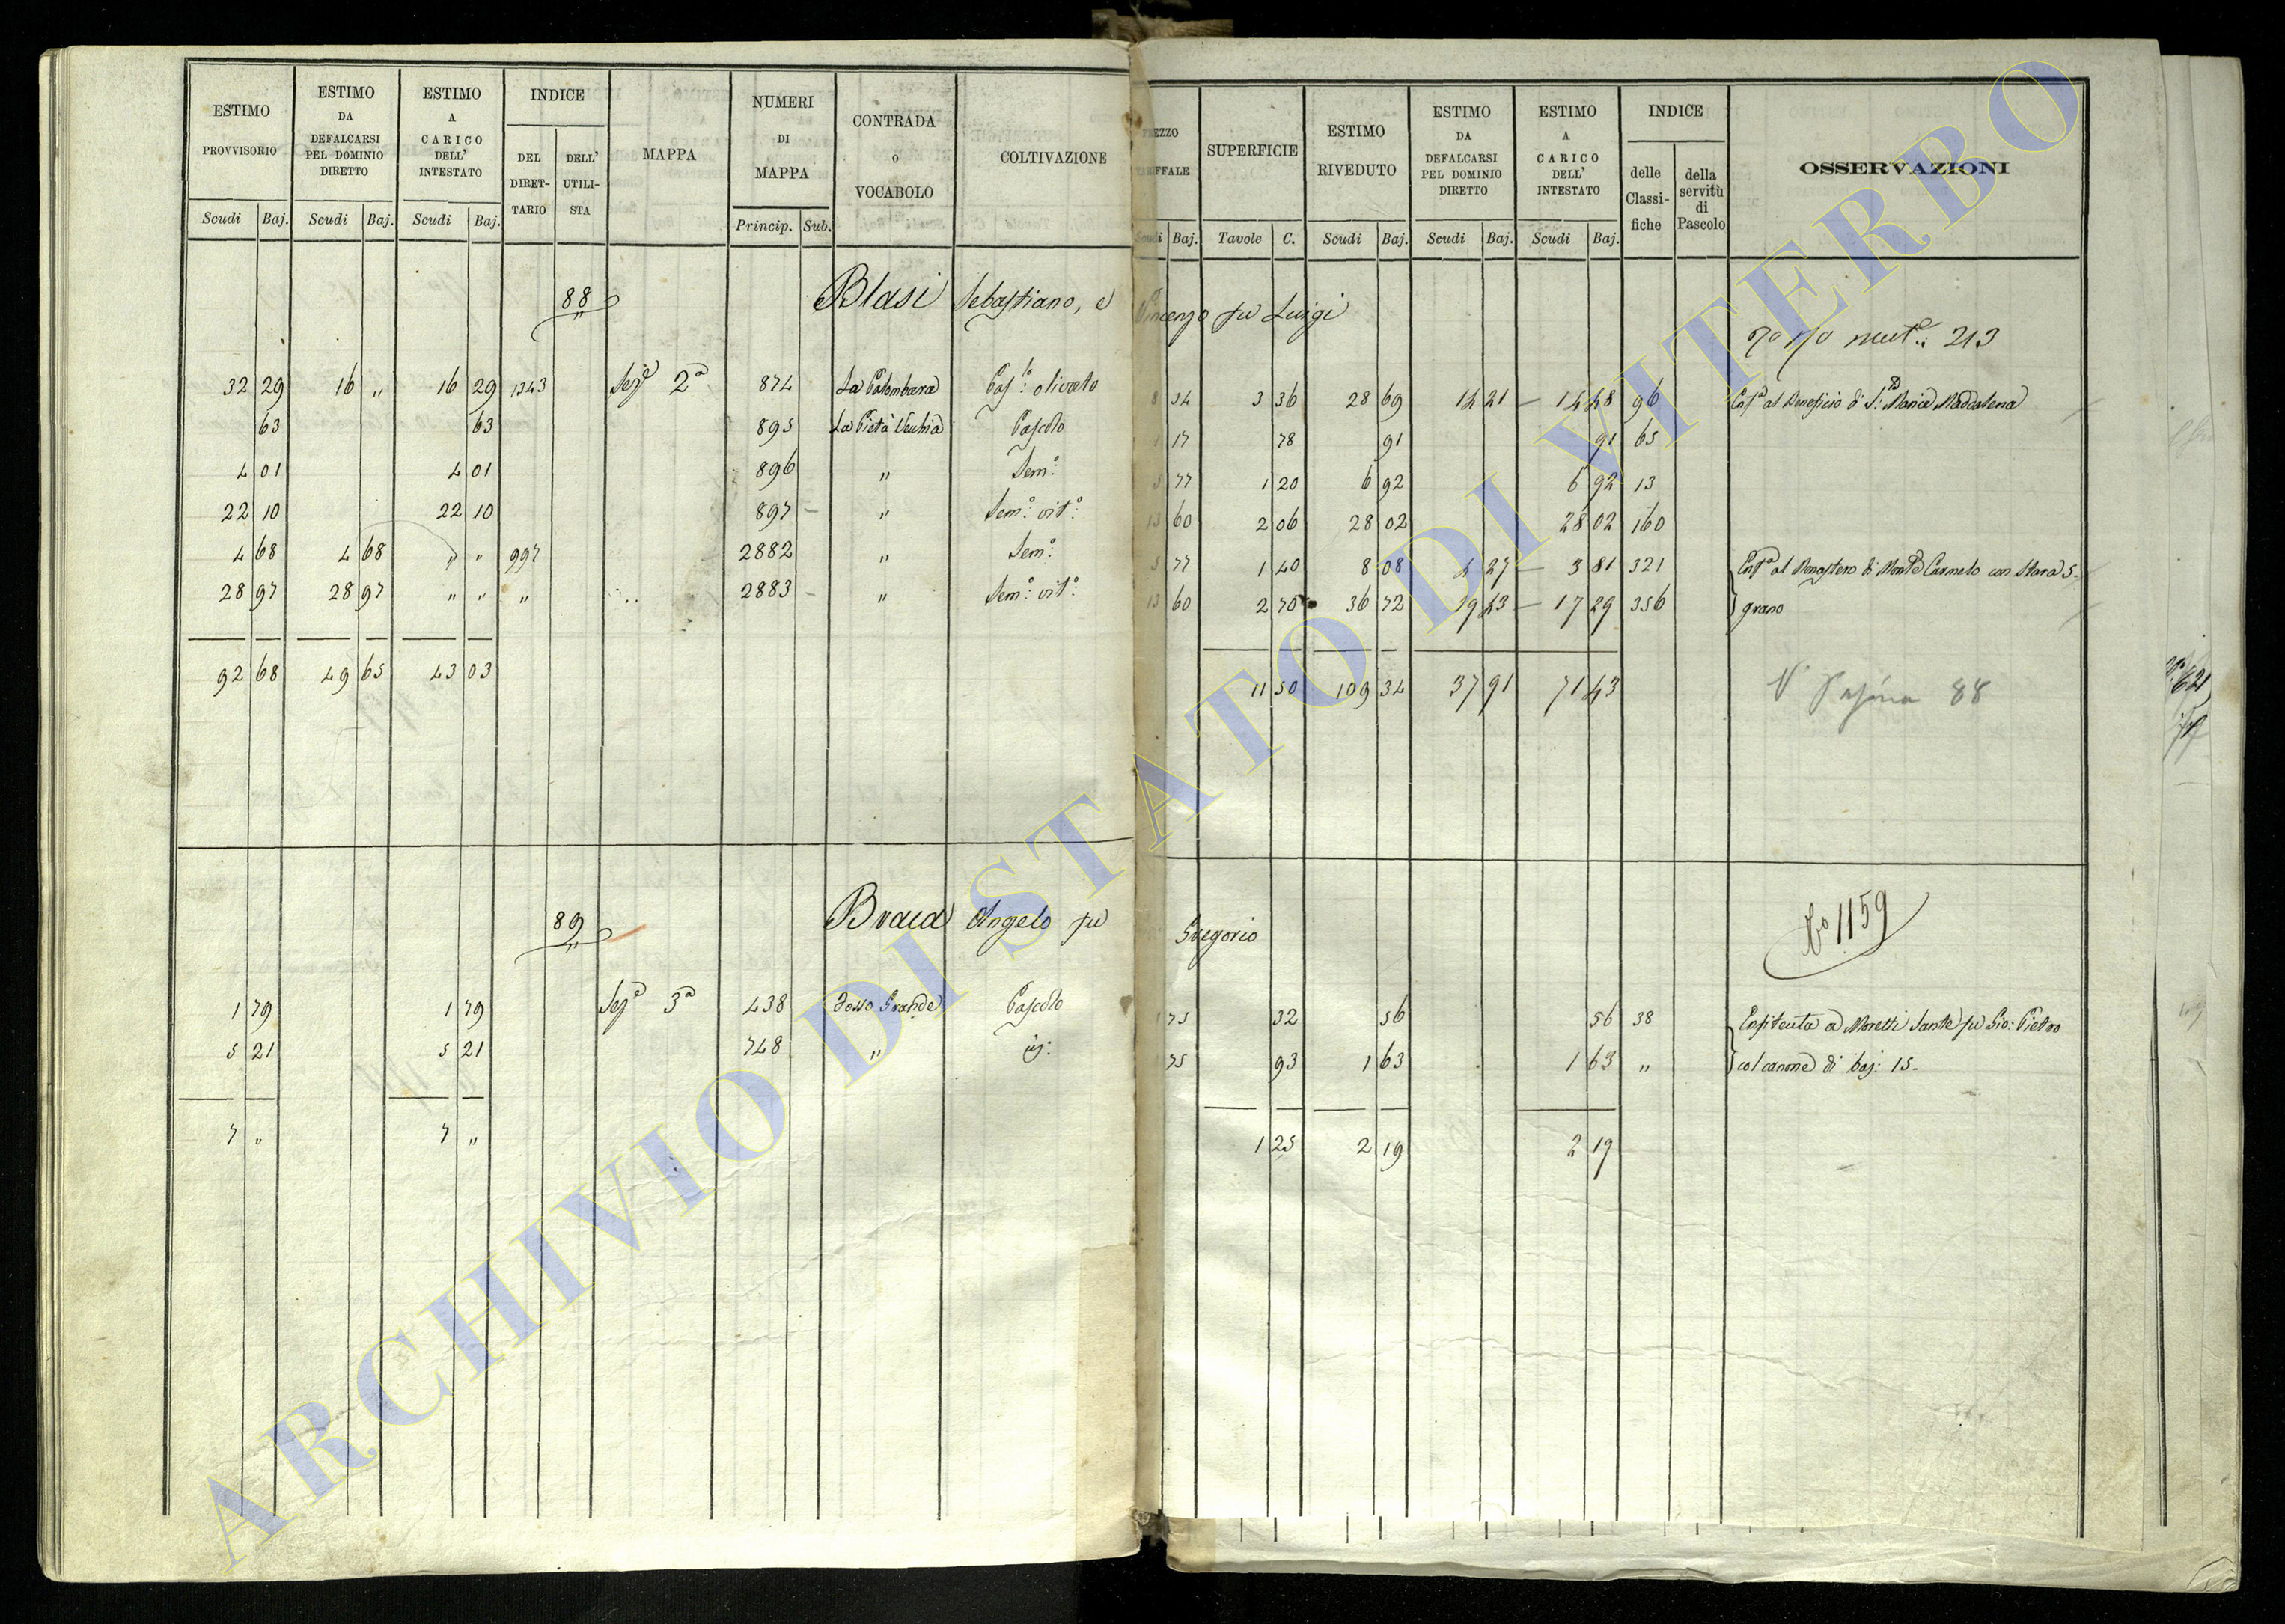 ESTIMO PROVVISORIO
ESTIMO DA DEFALCARSI PEL DOMINIO DIRETTO
ESTIMO A CARICO DELL' INTESTATO
INDICE
DEL DIRET-TARIO
DELL' UTILI-STA
MAPPA
NUMERI DI MAPPA
CONTRADA O VOCABOLO
COLTIVAZIONE
Scudi Baj. Scudi Baj. Scudi Baj. Princip. Sub.
88 Blasi Sebastiano, e
32 29 16 " 16 29 1343 Sez.e 2a 874 La Colombara Pas.o olivato
63 63 895 La Pietà Vecchia Pascolo
4 01 4 01 896 " Sem.o
22 10 22 10 897 " Sem.o vit.o
4 68 4 68 " " 997 2882 " Sem.o
28 97 28 97 " " " 2883 " Sem.o vit.o
92 68 49 65 43 03
89 Angelo fu
1 79 1 79 Sez.e 3a 438 Fosso Grande Pascolo
5 21 5 21 748 "
7 " 7 "
SUPERFICIE
ESTIMO RIVEDUTO
ESTIMO DA DEFALCARSI PEL DOMINIO DIRETTO
ESTIMO A CARICO DELL' INTESTATO
INDICE
delle Classi-fiche
della servitù di Pascolo
OSSERVAZIONI
Baj. Tavole C. Scudi Baj. Scudi Baj. Scudi Baj.
Vincenzo fu Luigi
213
8 54 3 36 28 69 14 21 14 48 96 Enf.a al Beneficio di S. Maria Maddalena
1 17 78 91 91 65
5 77 1 20 6 92 6 92 13
13 60 2 06 28 02 28 02 160
5 77 1 40 8 08 4 27 3 81 321 Enf.a al Monastero di Monte Carmelo con stara 5
13 60 2 70 36 72 19 43 17 29 356 grano
11 50 109 34 37 91 71 43
V Pagina 88
1159
Gregorio
1 75 32 56 56 38 Enfiteuta a Moretti Sante fu Gio: Pietro
75 93 1 63 1 63 " col canone di baj: 15-
1 25 2 19 2 19
ARCHIVIO DI STATO DI VITERBO